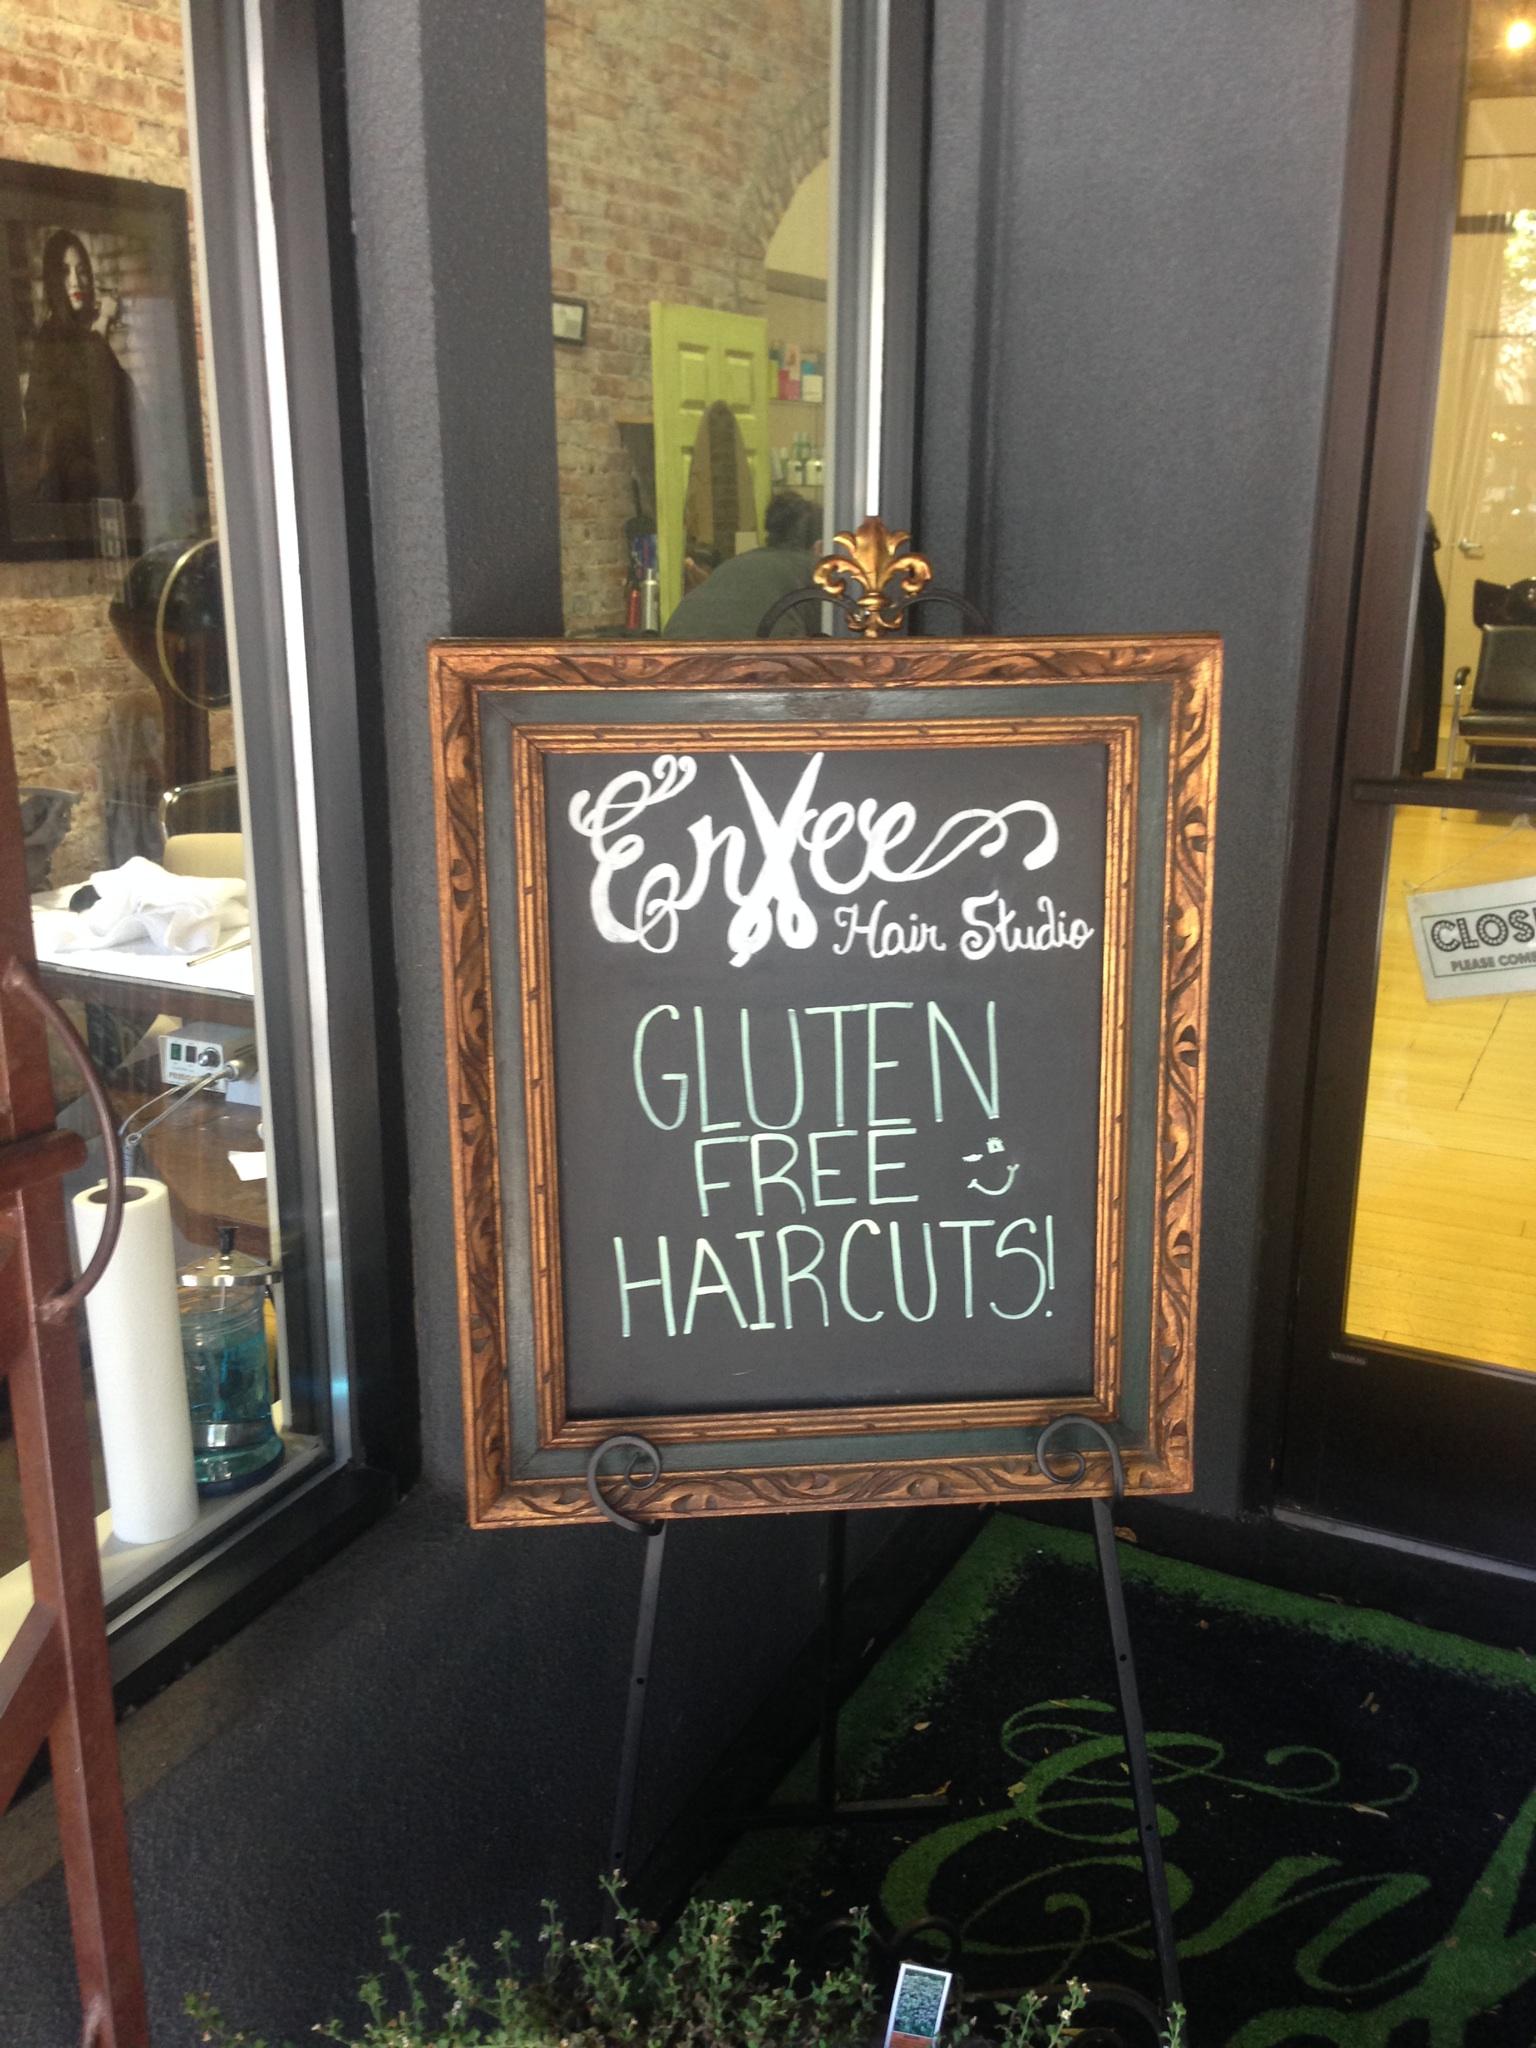 Envee
Hair Studio
GLUTEN
FREE
HAIRCUTS!
CLOS
PLEASE COME
Env